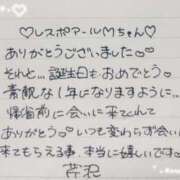 ♡レスポアールMちゃん♡
ありがとうございました♡
それと…誕生日もおめでとう♡
素敵な1年になりますように…
帰省前に会いに来てくれて
ありがとう♡いつも変わらず会いに
来てもらえる事、本当に嬉しいです♡